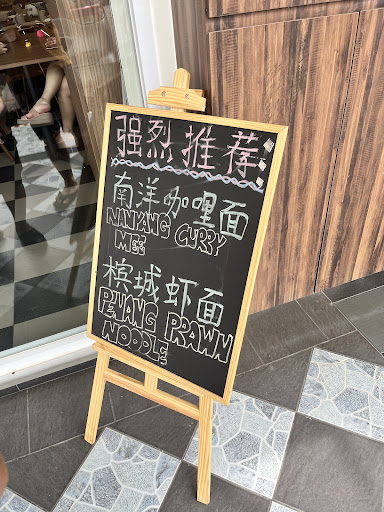 强烈推荐
南洋咖哩面
NANYANG CURRY
MEE
槟城虾面
PENANG PRAWN
NOODLE